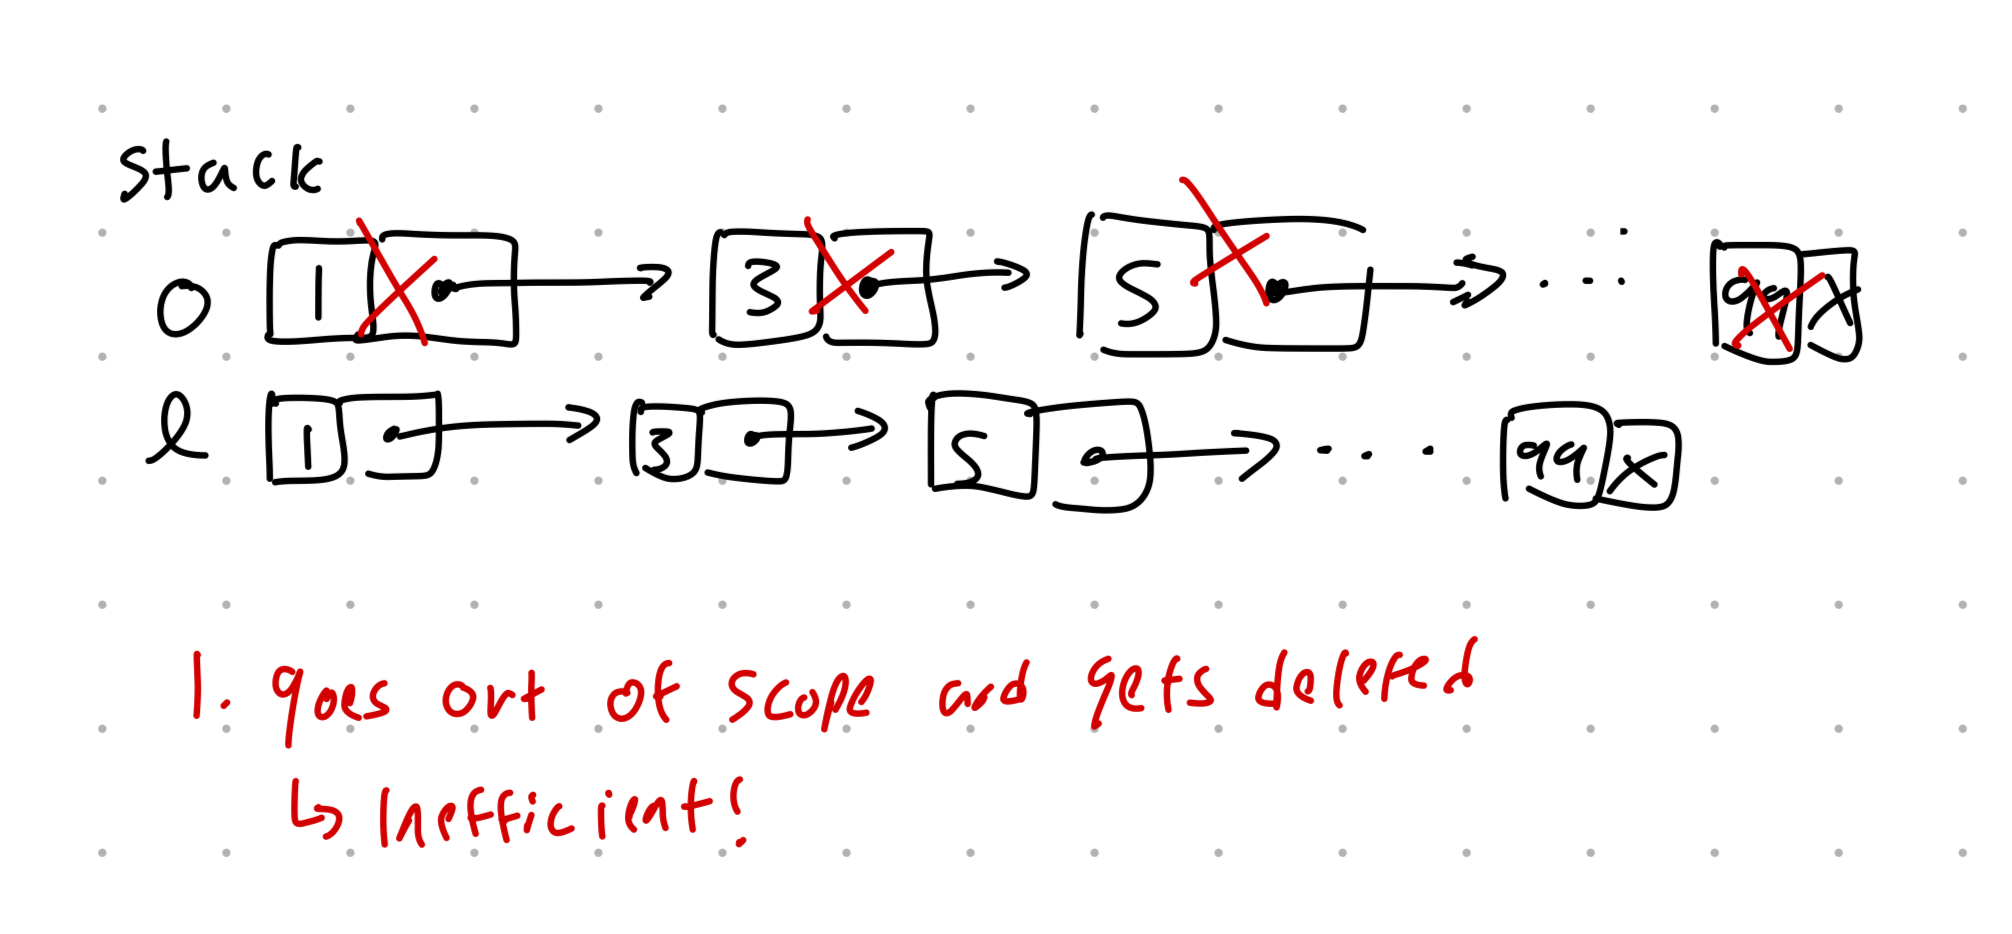 stack
O 1 3 5 ... 99
l 1 3 5 ... 99 X
1. goes out of scope and gets deleted
↳ Inefficient!